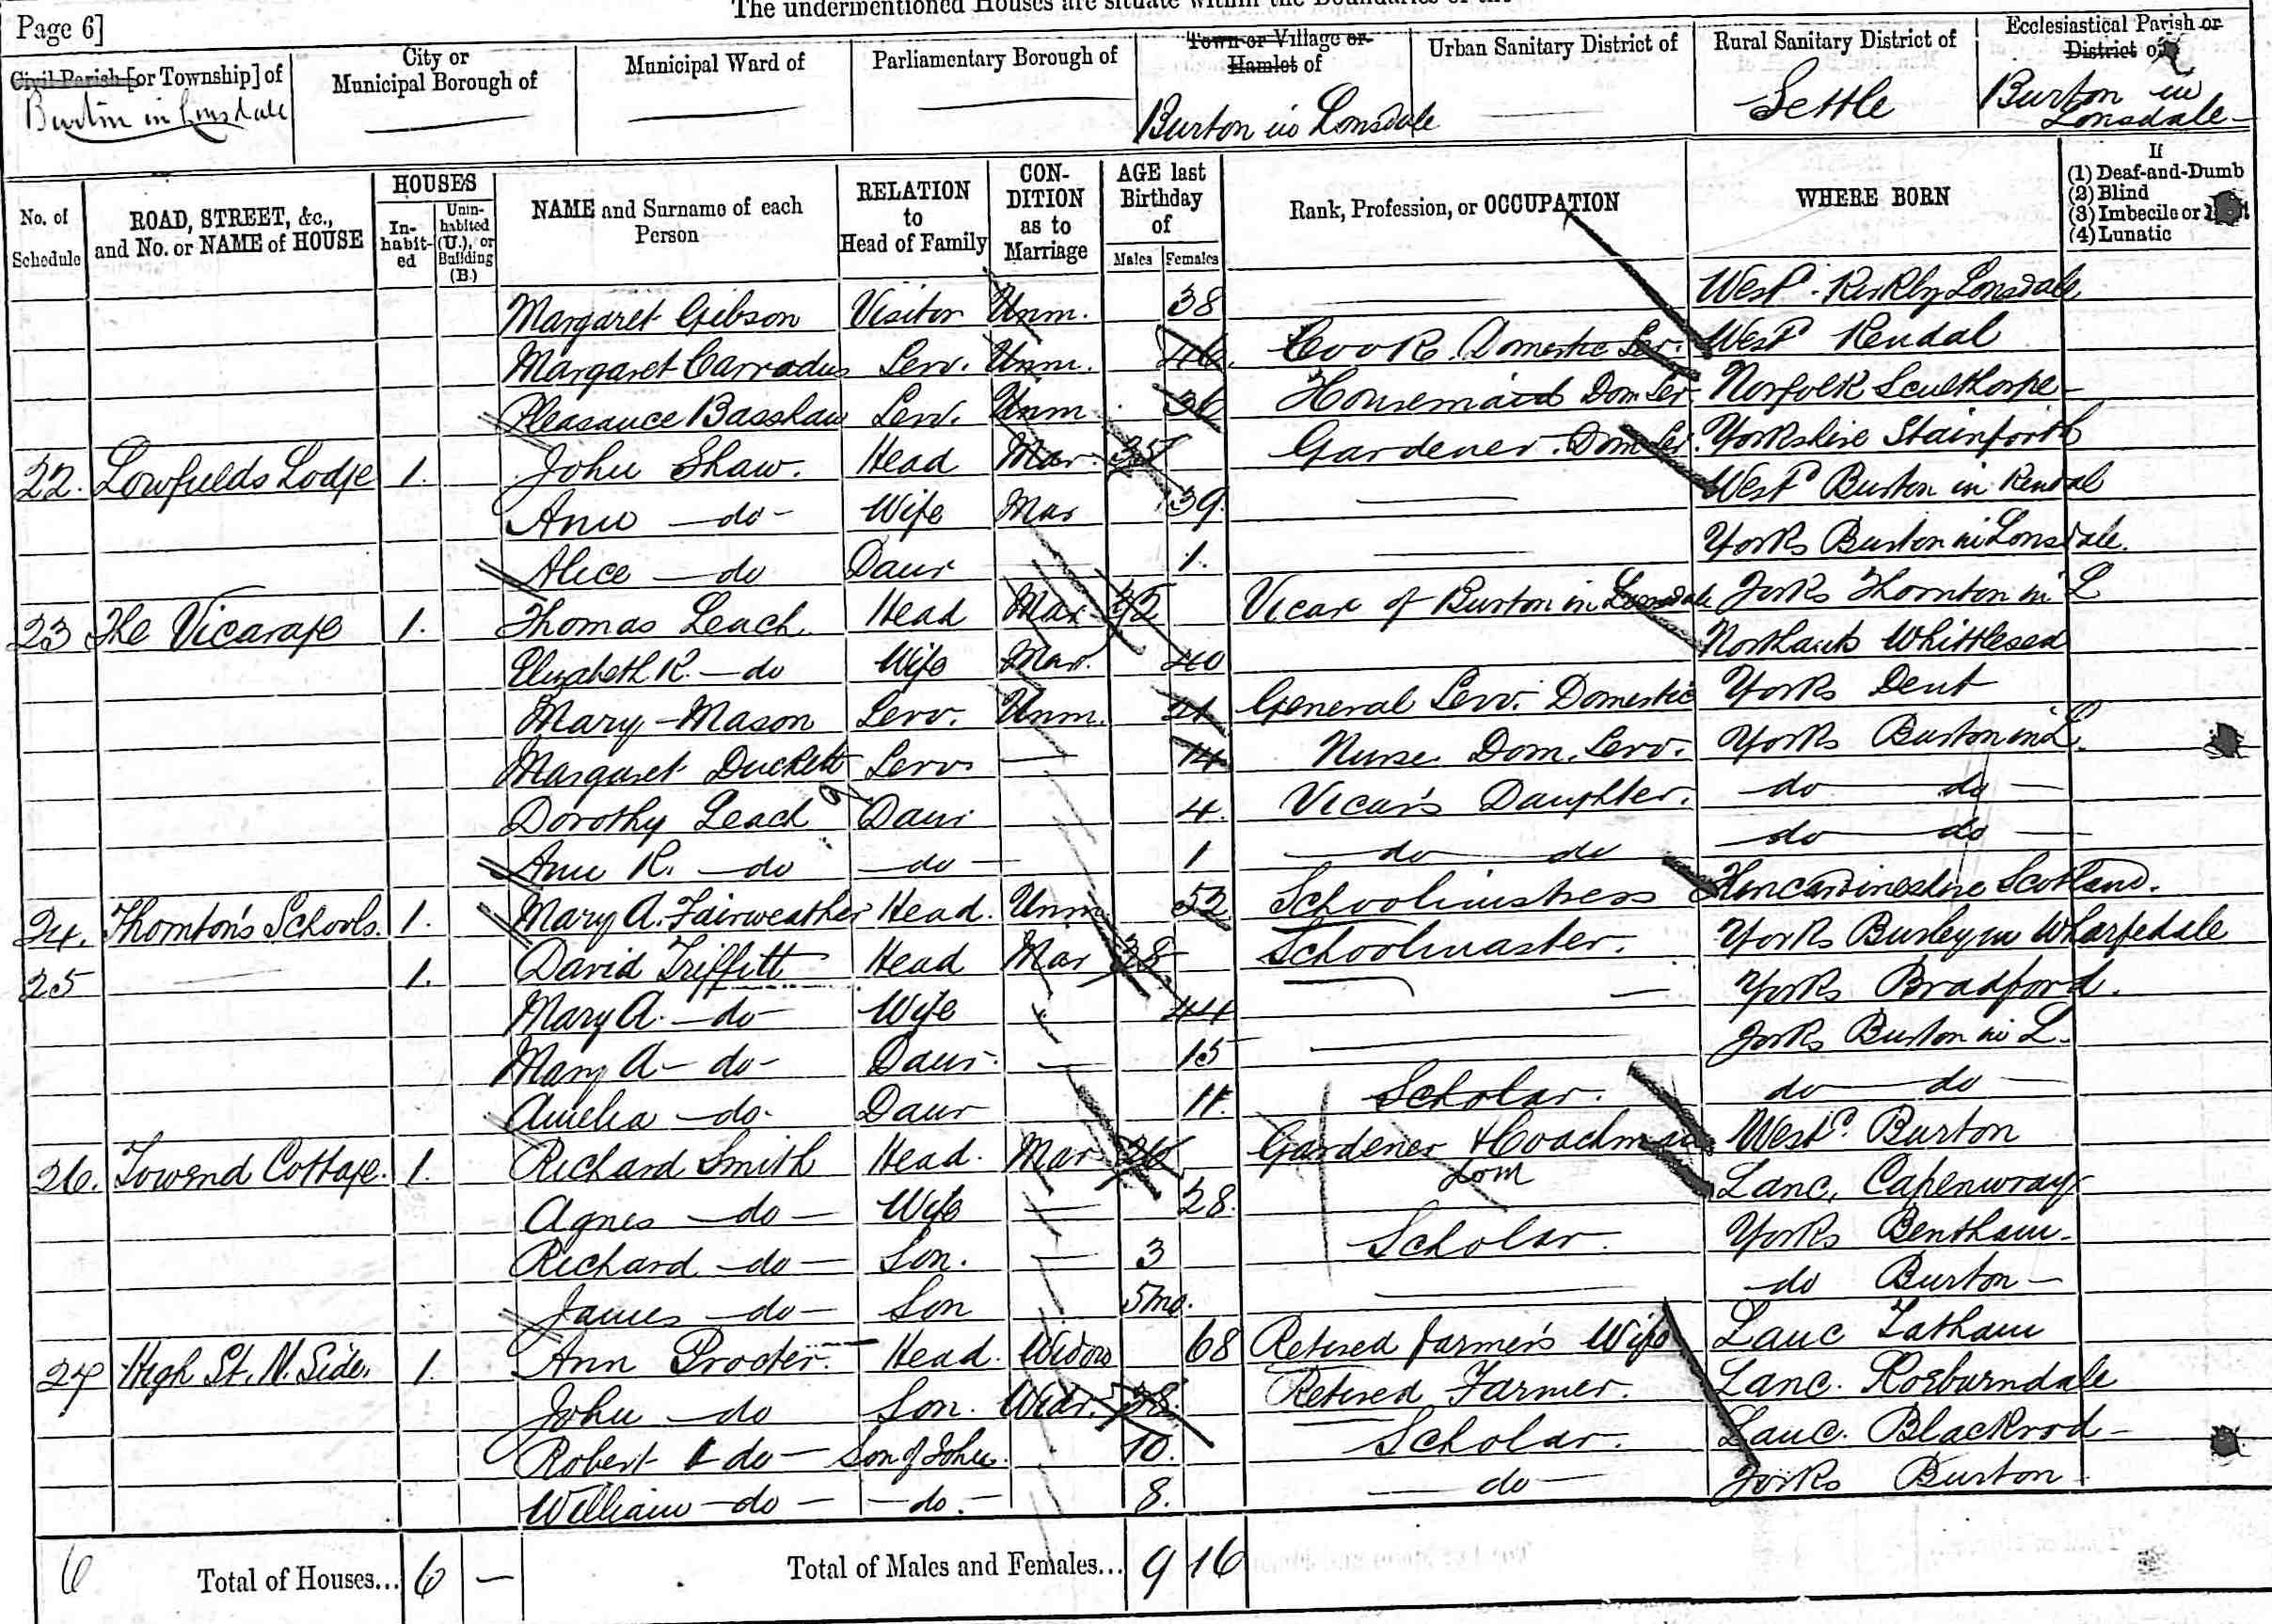 The undermentioned Houses are situate within the Boundaries of the
Page 6]
Civil Parish [or Township] of
Burton in Lonsdale
City or Municipal Borough of
Municipal Ward of
Parliamentary Borough of
Town or Village or Hamlet of
Burton in Lonsdale
Urban Sanitary District of
Rural Sanitary District of
Settle
Ecclesiastical Parish or District of
Burton in Lonsdale
No. of Schedule
ROAD, STREET, &c., and No. or NAME of HOUSE
HOUSES
In-habit-ed
Unin-habited (U.), or Building (B.)
NAME and Surname of each Person
RELATION to Head of Family
CON-DITION as to Marriage
AGE last Birthday of
Males Females
Rank, Profession, or OCCUPATION
WHERE BORN
If
(1) Deaf-and-Dumb
(2) Blind
(3) Imbecile or
(4) Lunatic
Margaret Gibson Visitor Unm. 38 West. Kirkby Lonsdale
Margaret Carradus Serv. Unm. 46 Cook. Domestic Ser. West Kendal
Pleasance Basshaw Serv. Unm 36 Housemaid Dom Ser Norfolk Sculthorpe
22. Lowfields Lodge 1. John Shaw. Head Mar. 35 Gardener. Dom Ser. Yorkshire Stainforth
Ann do Wife Mar 39. West Burton in Kendal
Alice do Daur 1. Yorks Burton in Lonsdale.
23 The Vicarage 1. Thomas Leach Head Mar Vicar of Burton in Lonsdale Yorks Thornton in L
Elizabeth R. do Wife Mar. 40 Northants Whittlesea
Mary Mason Serv. Unm. General Serv. Domestic Yorks Dent
Margaret Duckett Serv 14 Nurse Dom. Serv. Yorks Burton in L.
Dorothy Leach Daur 4. Vicar's Daughter. do do
Ann R. do do 1 do do do do
24. Thornton's Schools. 1. Mary A. Fairweather Head. Unm 52 Schoolmistress Kincardineshire Scotland.
25 1. David Triffitt Head Mar 38 Schoolmaster. Yorks Burley in Wharfedale
Mary A. do Wife 44 Yorks Bradford.
Mary A do Daur. 15 Yorks Burton in L.
Amelia do. Daur 11. Scholar. do do
26. Townend Cottage. 1. Richard Smith Head. Mar 26 Gardener & Coachman dom West. Burton
Agnes do Wife 28. Lanc. Capenwray
Richard do Son. 3 Scholar. Yorks Bentham
James do Son 5mo. do Burton
27 High St. N. Side. 1. Ann Procter. Head. Widow 68 Retired Farmer's Wife Lanc Tatham
John do Son. Widr. 38. Retired Farmer. Lanc. Roeburndale
Robert do Son of John. 10. Scholar. Lanc. Blackrod
William do do. 8. do Yorks Burton
6 Total of Houses... 6 — Total of Males and Females... 9 16